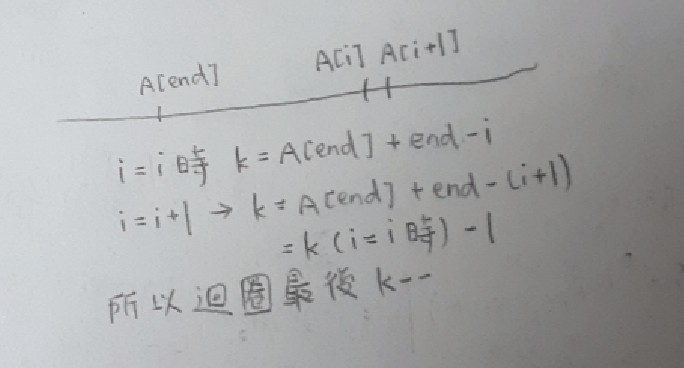 A[end] A[i] A[i+1]
i=i 時 k=A[end]+end-i
i=i+1 → k=A[end]+end-(i+1)
=k(i=i時)-1
所以迴圈最後 k--